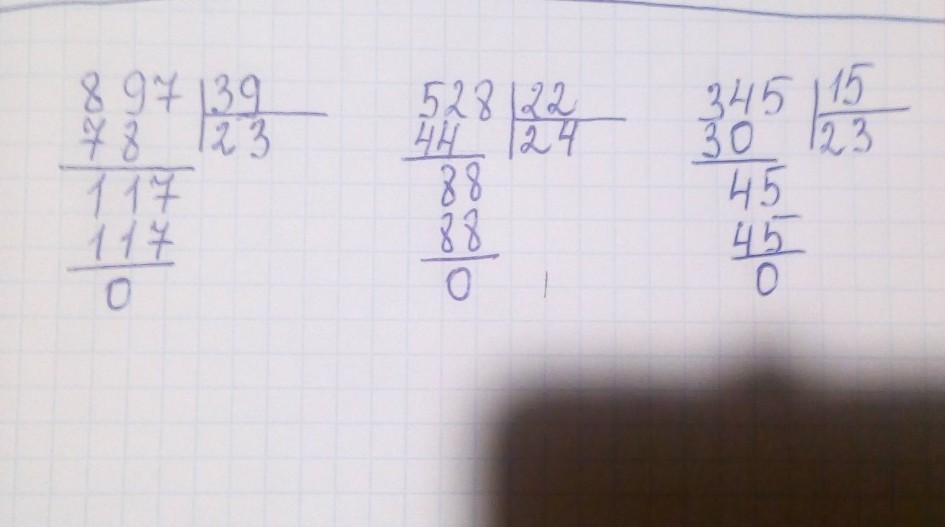 897 39
78 23
117
117
0
528 22
44 24
88
88
0
345 15
30 23
45
45
0